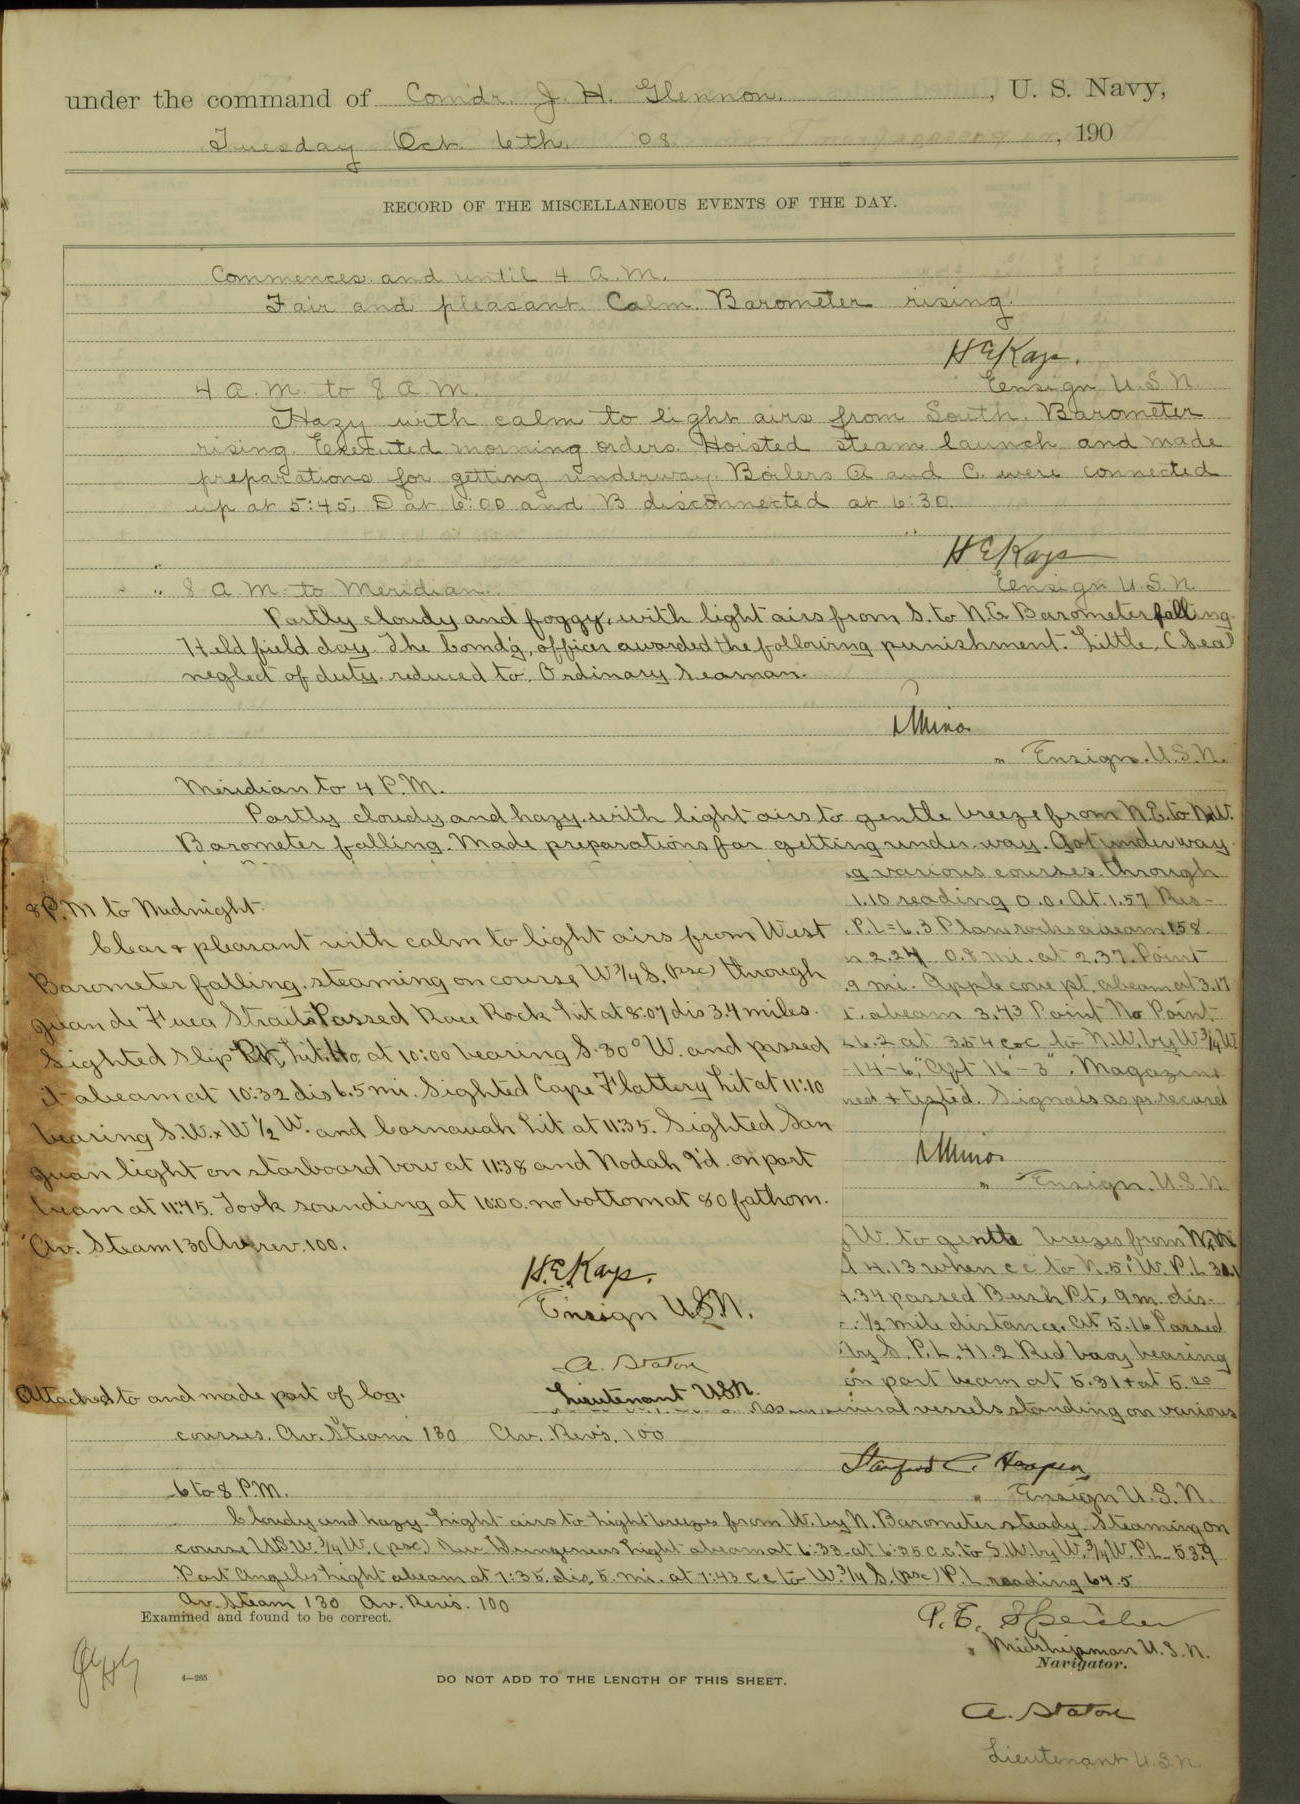 under the command of Comdr. J. H. Glennon, U. S. Navy,
Tuesday Oct. 6th. 08, 190
RECORD OF THE MISCELLANEOUS EVENTS OF THE DAY.
Commences and until 4 A.M.
Fair and pleasant. Calm. Barometer rising.
H E Kays.
Ensign U.S.N.
4 A.M. to 8 A.M.
Hazy with calm to light airs from South. Barometer
rising. Executed morning orders. Hoisted steam launch and made
preparations for getting underway. Boilers A and C. were connected
up at 5:45, D at 6:00 and B disconnected at 6:30.
H E Kays
Ensign U.S.N.
8 A.M. to Meridian.
Partly cloudy and foggy, with light airs from S. to N.E. Barometer falling.
Held field day. The Comd'g, officer awarded the following punishment. Little, (Sea)
neglect of duty. reduced to Ordinary Seaman.
Ensign. U.S.N.
Meridian to 4 P.M.
Partly cloudy and hazy. with light airs to gentle breeze from N.E. to N.W.
Barometer falling. Made preparations for getting under way. Got under way
g various courses. through
1.10 reading 0.0. At 1.57 Res-
P.L=6.3 abeam 158.
n 2.24 0.8 mi. at 2.37. Point
.9 mi. Apple cove pt. abeam at 3.17
abeam 3.43 Point No Point
26.2 at 354 c.c to N.W. by W 3/4 W
-14'-6", "Aft 16'-3". Magazine
ned & tested. Signals as per record
Ensign. U.S.N.
W. to gentle breezes from
4.13 when c c to N. 51° W. P.L 30.1
4.34 passed Bush Pt. 9 m. dis-
1/2 mile distance. At 5.16 Passed
by S. P.L. 41.2 Red buoy bearing
on port beam at 5.31 & at 5.
several vessels standing on various
8 P.M to Midnight.
Clear & pleasant with calm to light airs from West
Barometer falling. steaming on course W 3/4 S. (psc) through
Juan de Fuca Straits Passed Race Rock Lit at 8.07 dis 3.4 miles.
Sighted Slip Pt, Lit. Ho at 10:00 bearing S. 30° W. and passed
it abeam at 10:32 dis 6.5 mi. Sighted Cape Flattery Lit at 11:10
bearing S.W. x W 1/2 W. and Carmanah Lit at 11:35. Sighted San
Juan light on starboard bow at 11:38 and Wadah I'd. on port
beam at 11:45. Took sounding at 10:00. no bottom at 80 fathom.
Av. Steam 130 Av. rev. 100.
H.E. Kays.
Ensign U.S.N.
A. Staton
Lieutenant USN.
Attached to and made part of log.
courses. Av. Steam 130 Av. Revs. 100
Stanford C. Hooper,
Ensign U.S.N.
6 to 8 P.M.
Cloudy and hazy. Light airs to light breezes from W. by N. Barometer steady. Steaming on
course W. 3/4 W. (psc) New Dungeness Light abeam at 6:33. at 6:35 c.c. to S.W. by W. 3/4 W. P.L.
Port Angeles Light abeam at 7:35. dis. 5. mi. at 7:43 c c to W. 3/4 S. (psc) P.L reading 64.5
Av. Steam 130 Av. Revs. 100
Examined and found to be correct.
P. E. Speicher
Midshipman U.S.N.
Navigator.
4—265
DO NOT ADD TO THE LENGTH OF THIS SHEET.
A. Staton
Lieutenant U.S.N.